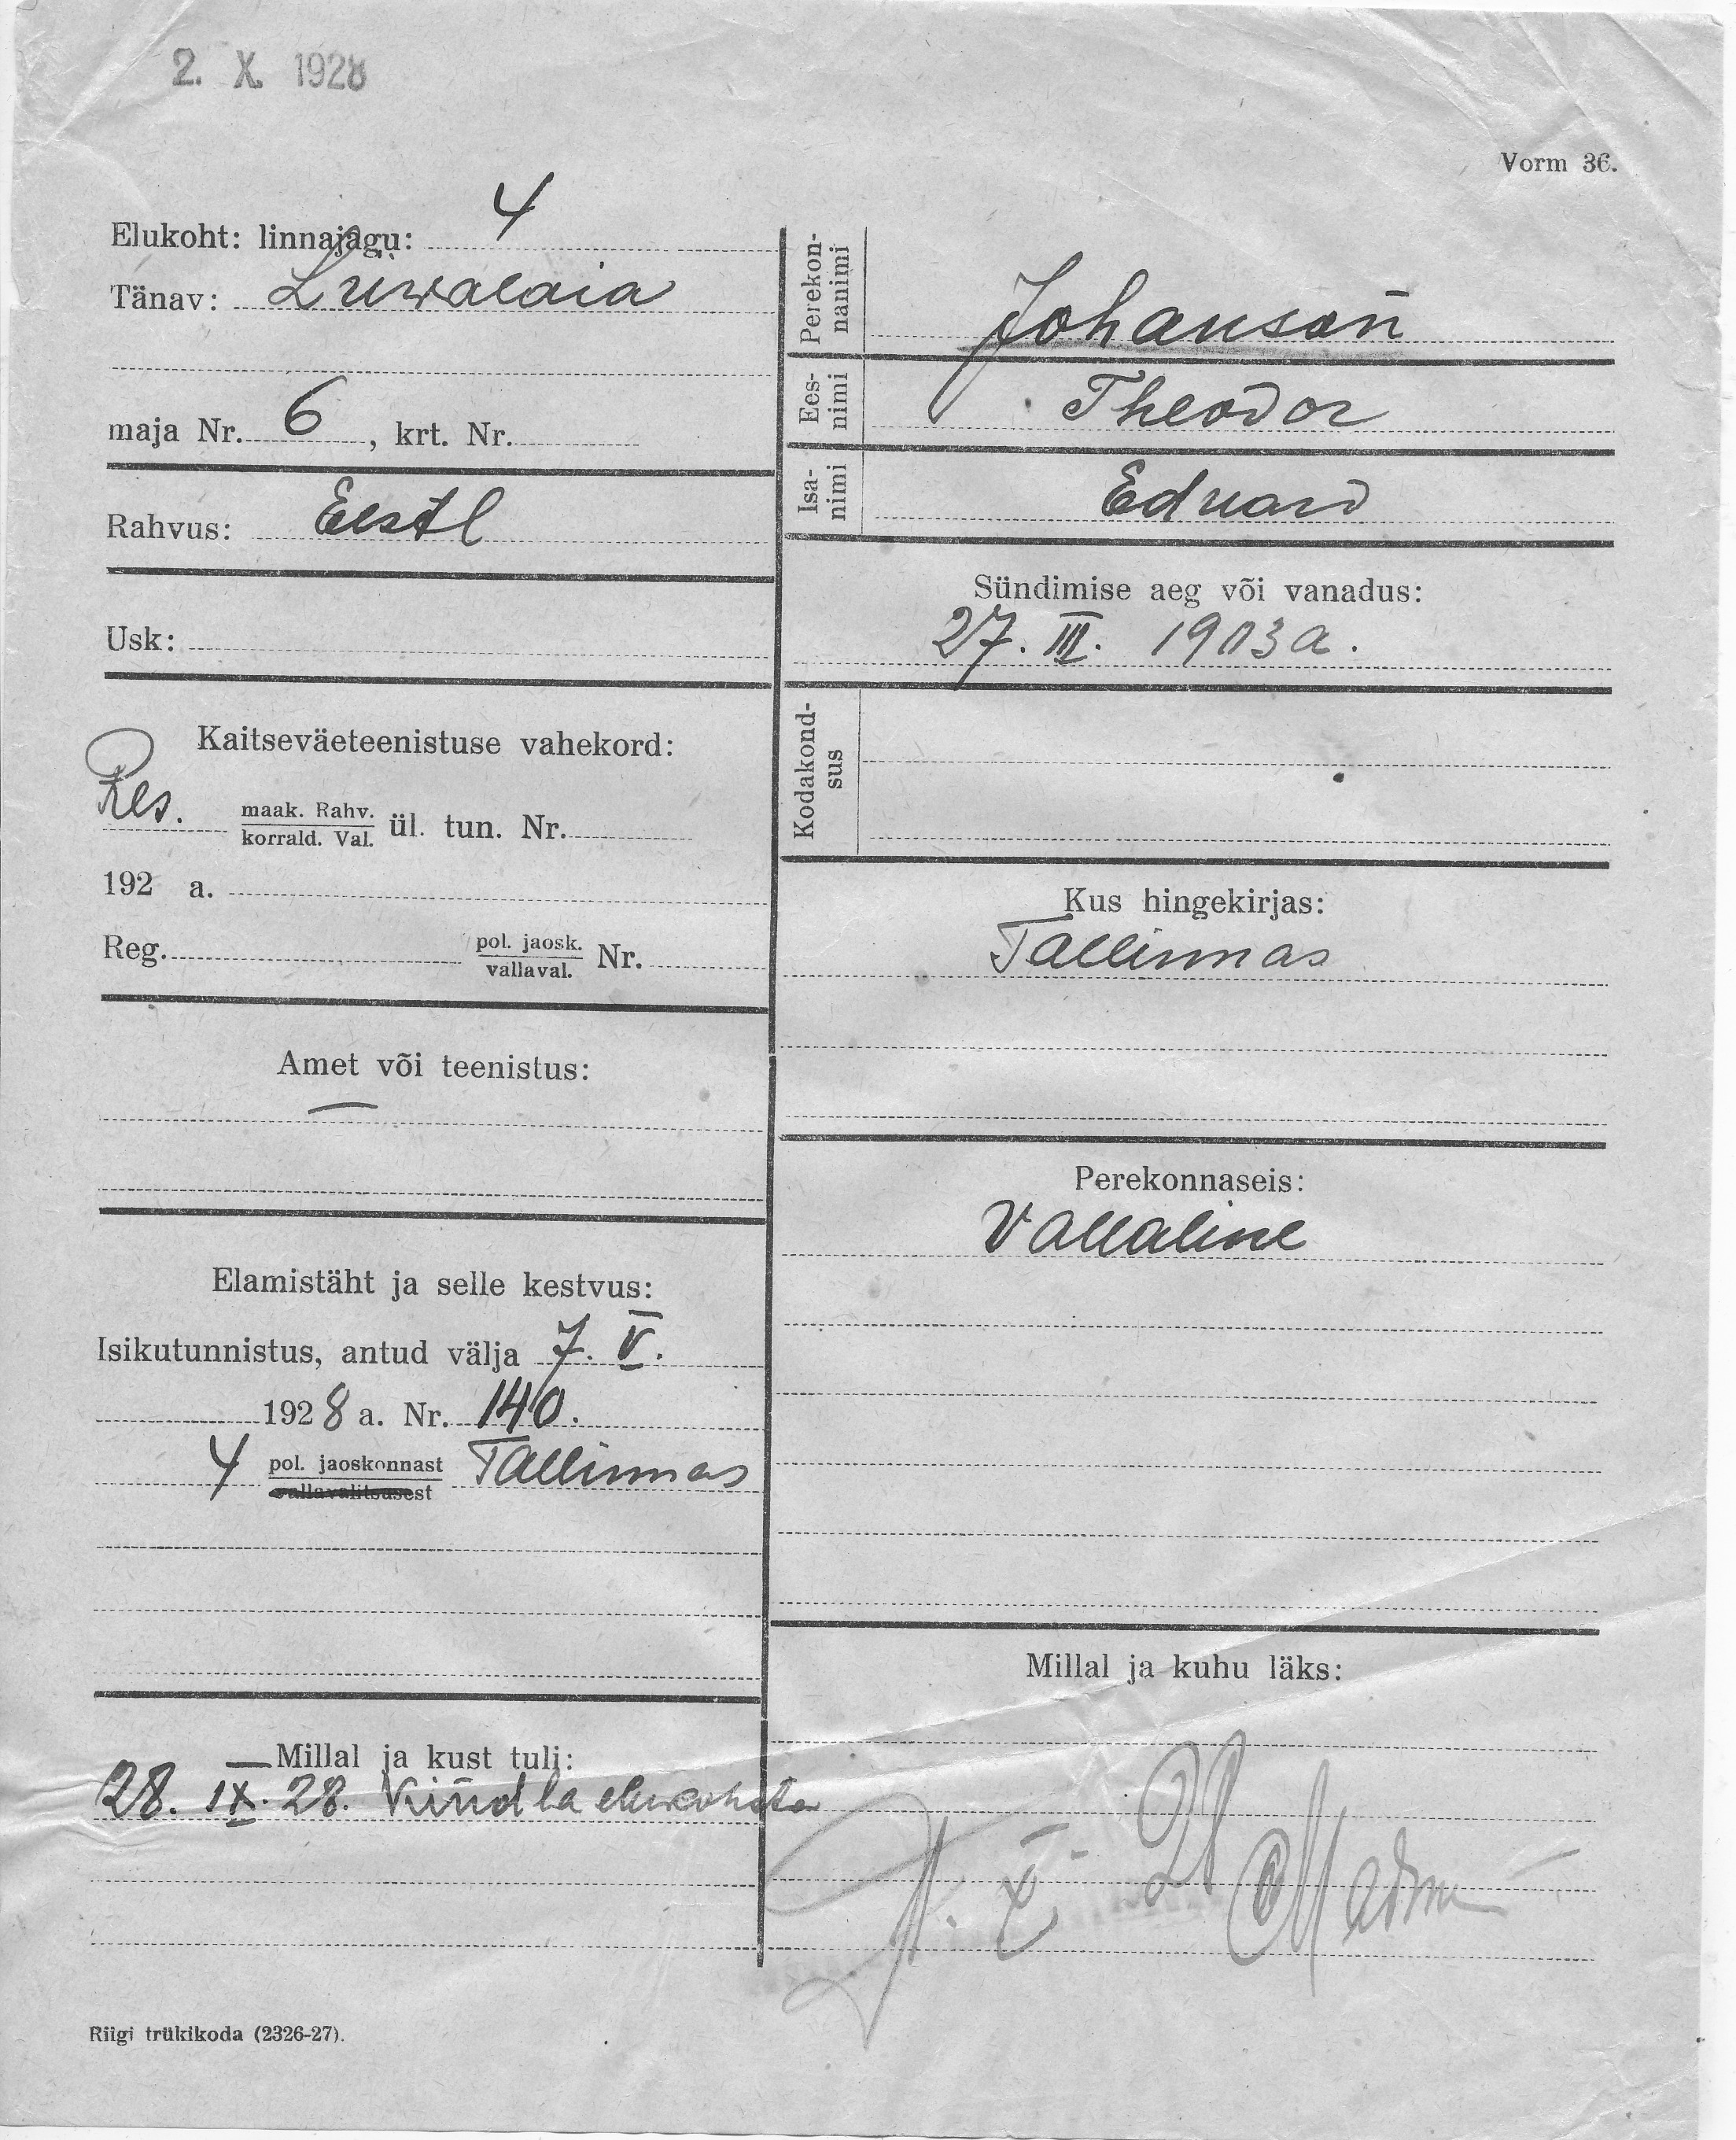 2. X. 1928
Vorm 36.
Elukoht: linnajagu: 4
Tänav: Liiwalaia
maja Nr. 6, krt. Nr.
Rahvus: Eestl
Usk:
Kaitseväeteenistuse vahekord:
Res. maak. Rahv. korrald. Val. ül. tun. Nr.
192 a.
Reg. pol. jaosk. vallaval. Nr.
Amet või teenistus:
—
Elamistäht ja selle kestvus:
Isikutunnistus, antud välja 7. V.
1928 a. Nr. 140.
4 pol. jaoskonnast Tallinnas
vallavalitsusest
Millal ja kust tuli:
28. IX. 28. Kindla elukohata
Riigi trükikoda (2326-27).
Perekon-
nanimi
Johanson
Ees-
nimi
Theodor
Isa-
nimi
Eduard
Sündimise aeg või vanadus:
27. III. 1903 a.
Kodakond-
sus
Kus hingekirjas:
Tallinnas
Perekonnaseis:
Vallaline
Millal ja kuhu läks:
X. 28